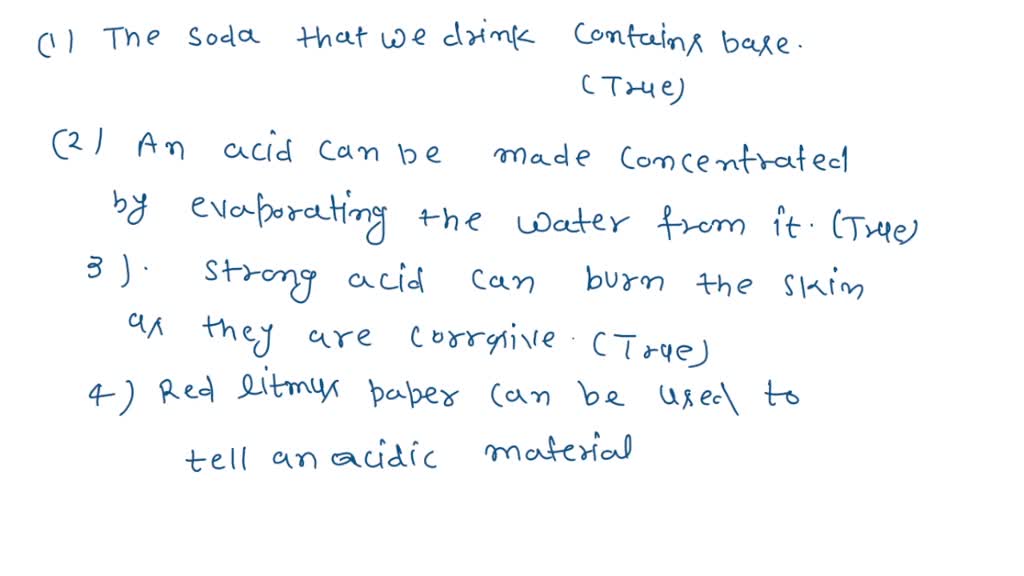 (1) The soda that we drink contains base.
(True)
(2) An acid can be made concentrated
by evaporating the water from it. (True)
3). strong acid can burn the skin
as they are corrosive. (True)
4) Red litmus paper can be used to
tell an acidic material